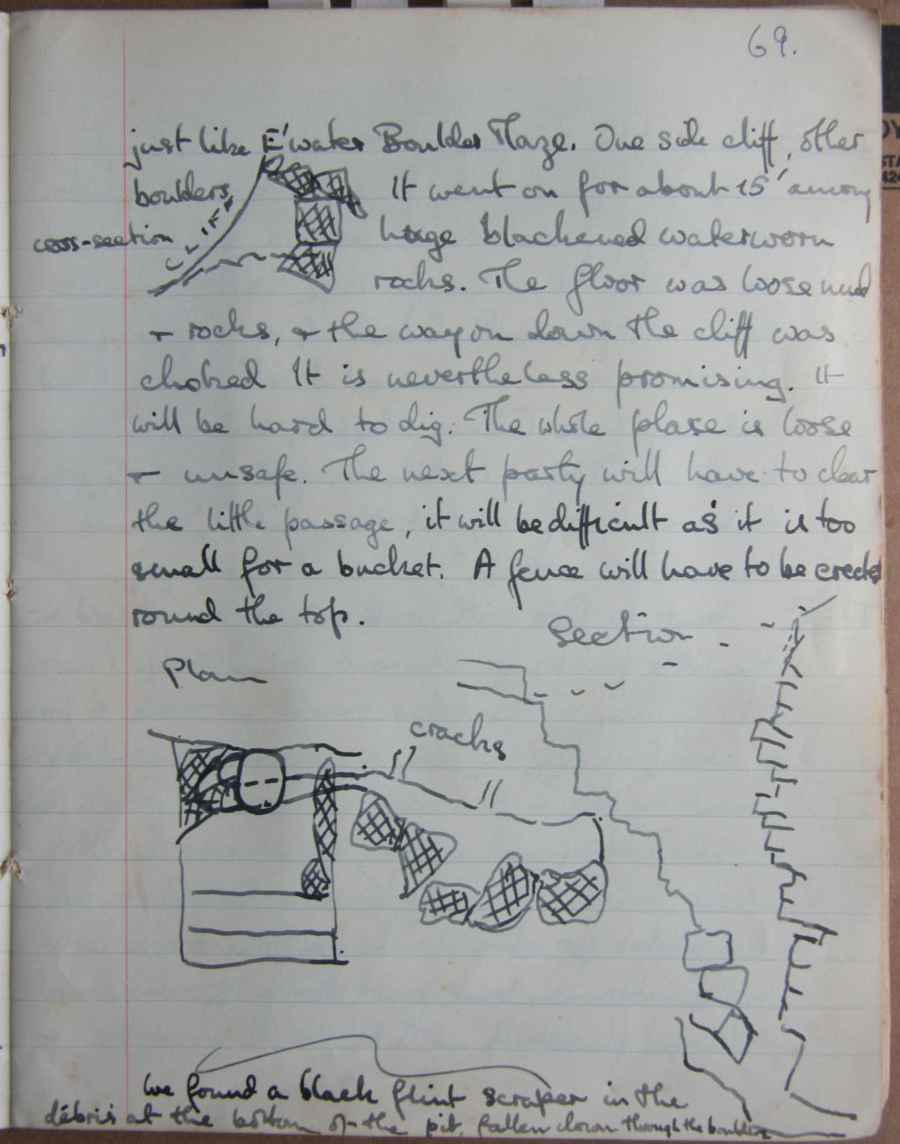 69.
just like E'water Boulder Maze. One side cliff, other
boulders, It went on for about 15' among
cross-section CLIFF huge blackened waterworn
rocks. The floor was loose mud
+ rocks, + the way on down the cliff was
choked It is nevertheless promising. It
will be hard to dig. The whole place is loose
+ unsafe. The next party will have to clear
the little passage, it will be difficult as it is too
small for a bucket. A fence will have to be erected
round the top.
Section
Plan
cracks
We found a black flint scraper in the
débris at the bottom of the pit, fallen down through the boulders